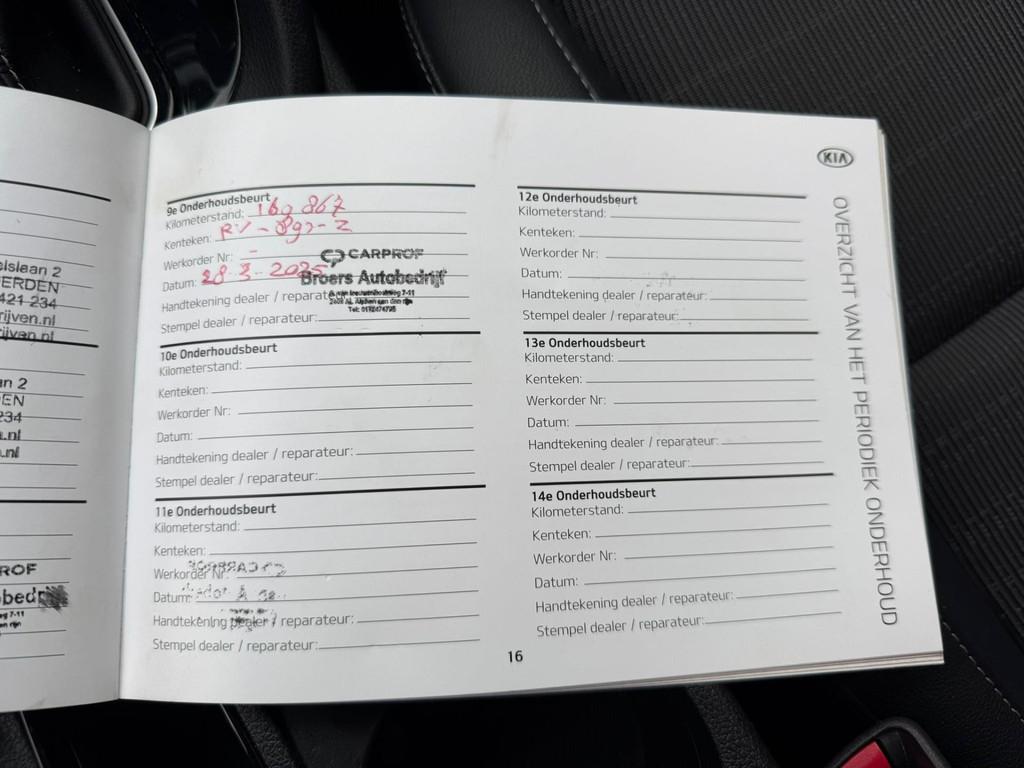 elslaan 2
ERDEN
421 234
rijven.nl
ijven.nl
an 2
EN
234
.nl
.nl
ROF
9e Onderhoudsbeurt
Kilometerstand: 169 867
Kenteken:
Werkorder Nr: -
Datum: 28-3-2025
Handtekening dealer / reparateur:
Stempel dealer / reparateur:
CARPROF
Broers Autobedrijf
10e Onderhoudsbeurt
Kilometerstand:
Kenteken:
Werkorder Nr:
Datum:
Handtekening dealer / reparateur:
Stempel dealer / reparateur:
11e Onderhoudsbeurt
Kilometerstand:
Kenteken:
Werkorder Nr:
Datum:
Handtekening dealer / reparateur:
Stempel dealer / reparateur:
12e Onderhoudsbeurt
Kilometerstand:
Kenteken:
Werkorder Nr:
Datum:
Handtekening dealer / reparateur:
Stempel dealer / reparateur:
13e Onderhoudsbeurt
Kilometerstand:
Kenteken:
Werkorder Nr:
Datum:
Handtekening dealer / reparateur:
Stempel dealer / reparateur:
14e Onderhoudsbeurt
Kilometerstand:
Kenteken:
Werkorder Nr:
Datum:
Handtekening dealer / reparateur:
Stempel dealer / reparateur:
KIA
OVERZICHT VAN HET PERIODIEK ONDERHOUD
16